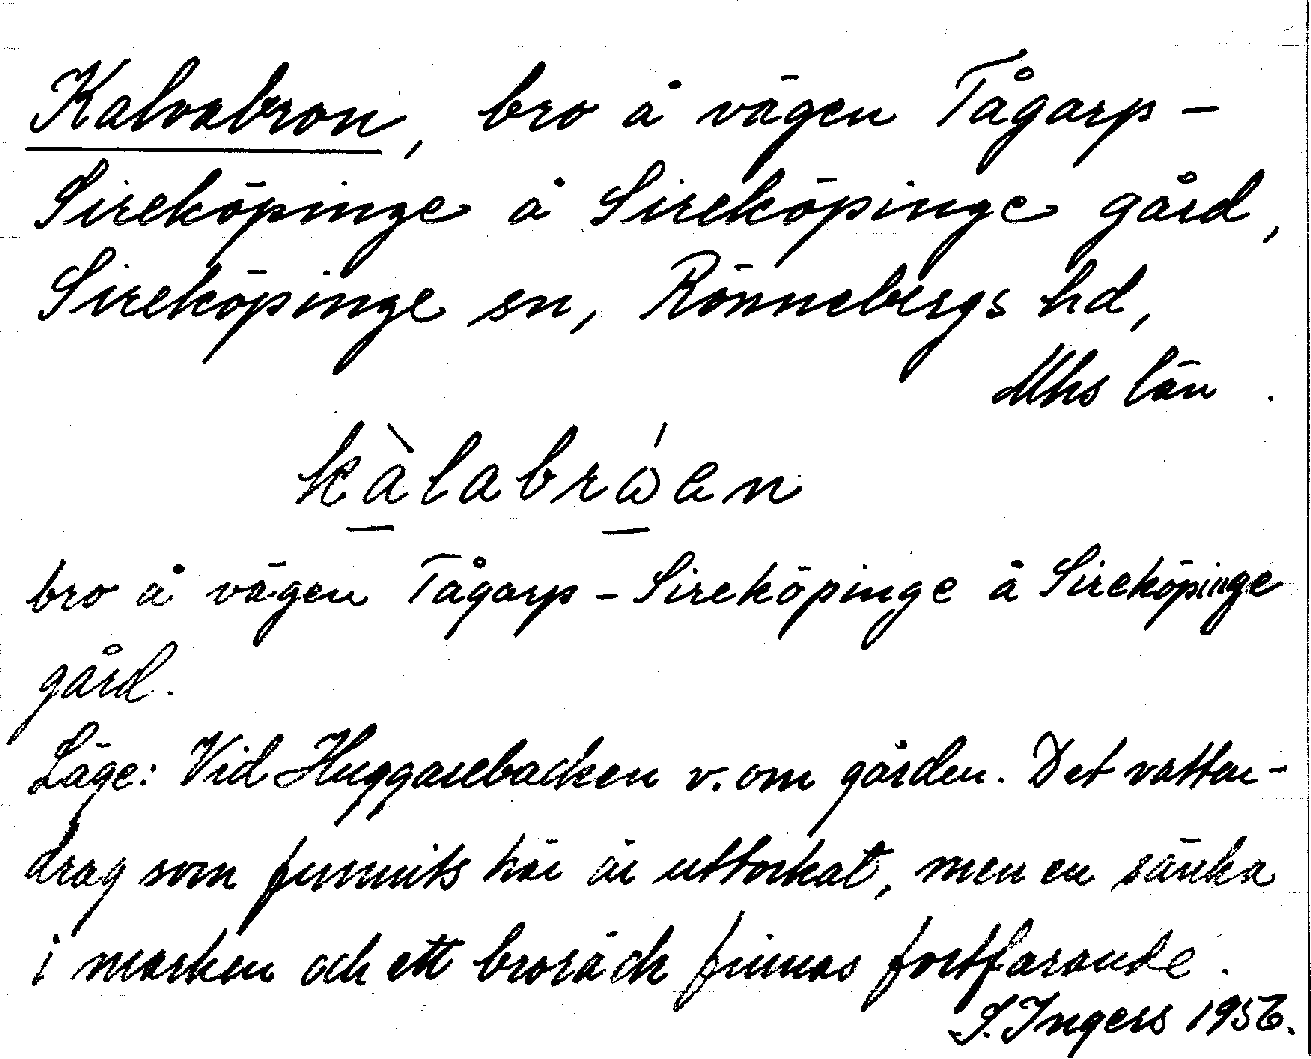 Kalvabron, bro å vägen Tågarp -
Sireköpinge å Sireköpinge gård,
Sireköpinge sn, Rönnebergs hd,
Mhs län.
kàlabróen
bro å vägen Tågarp - Sireköpinge å Sireköpinge
gård.
Läge: Vid Huggarebacken v. om gården. Det vatten-
drag som funnits här är uttorkat, men en sänka
i marken och ett broräck finnas fortfarande.
S. Ingers 1956.